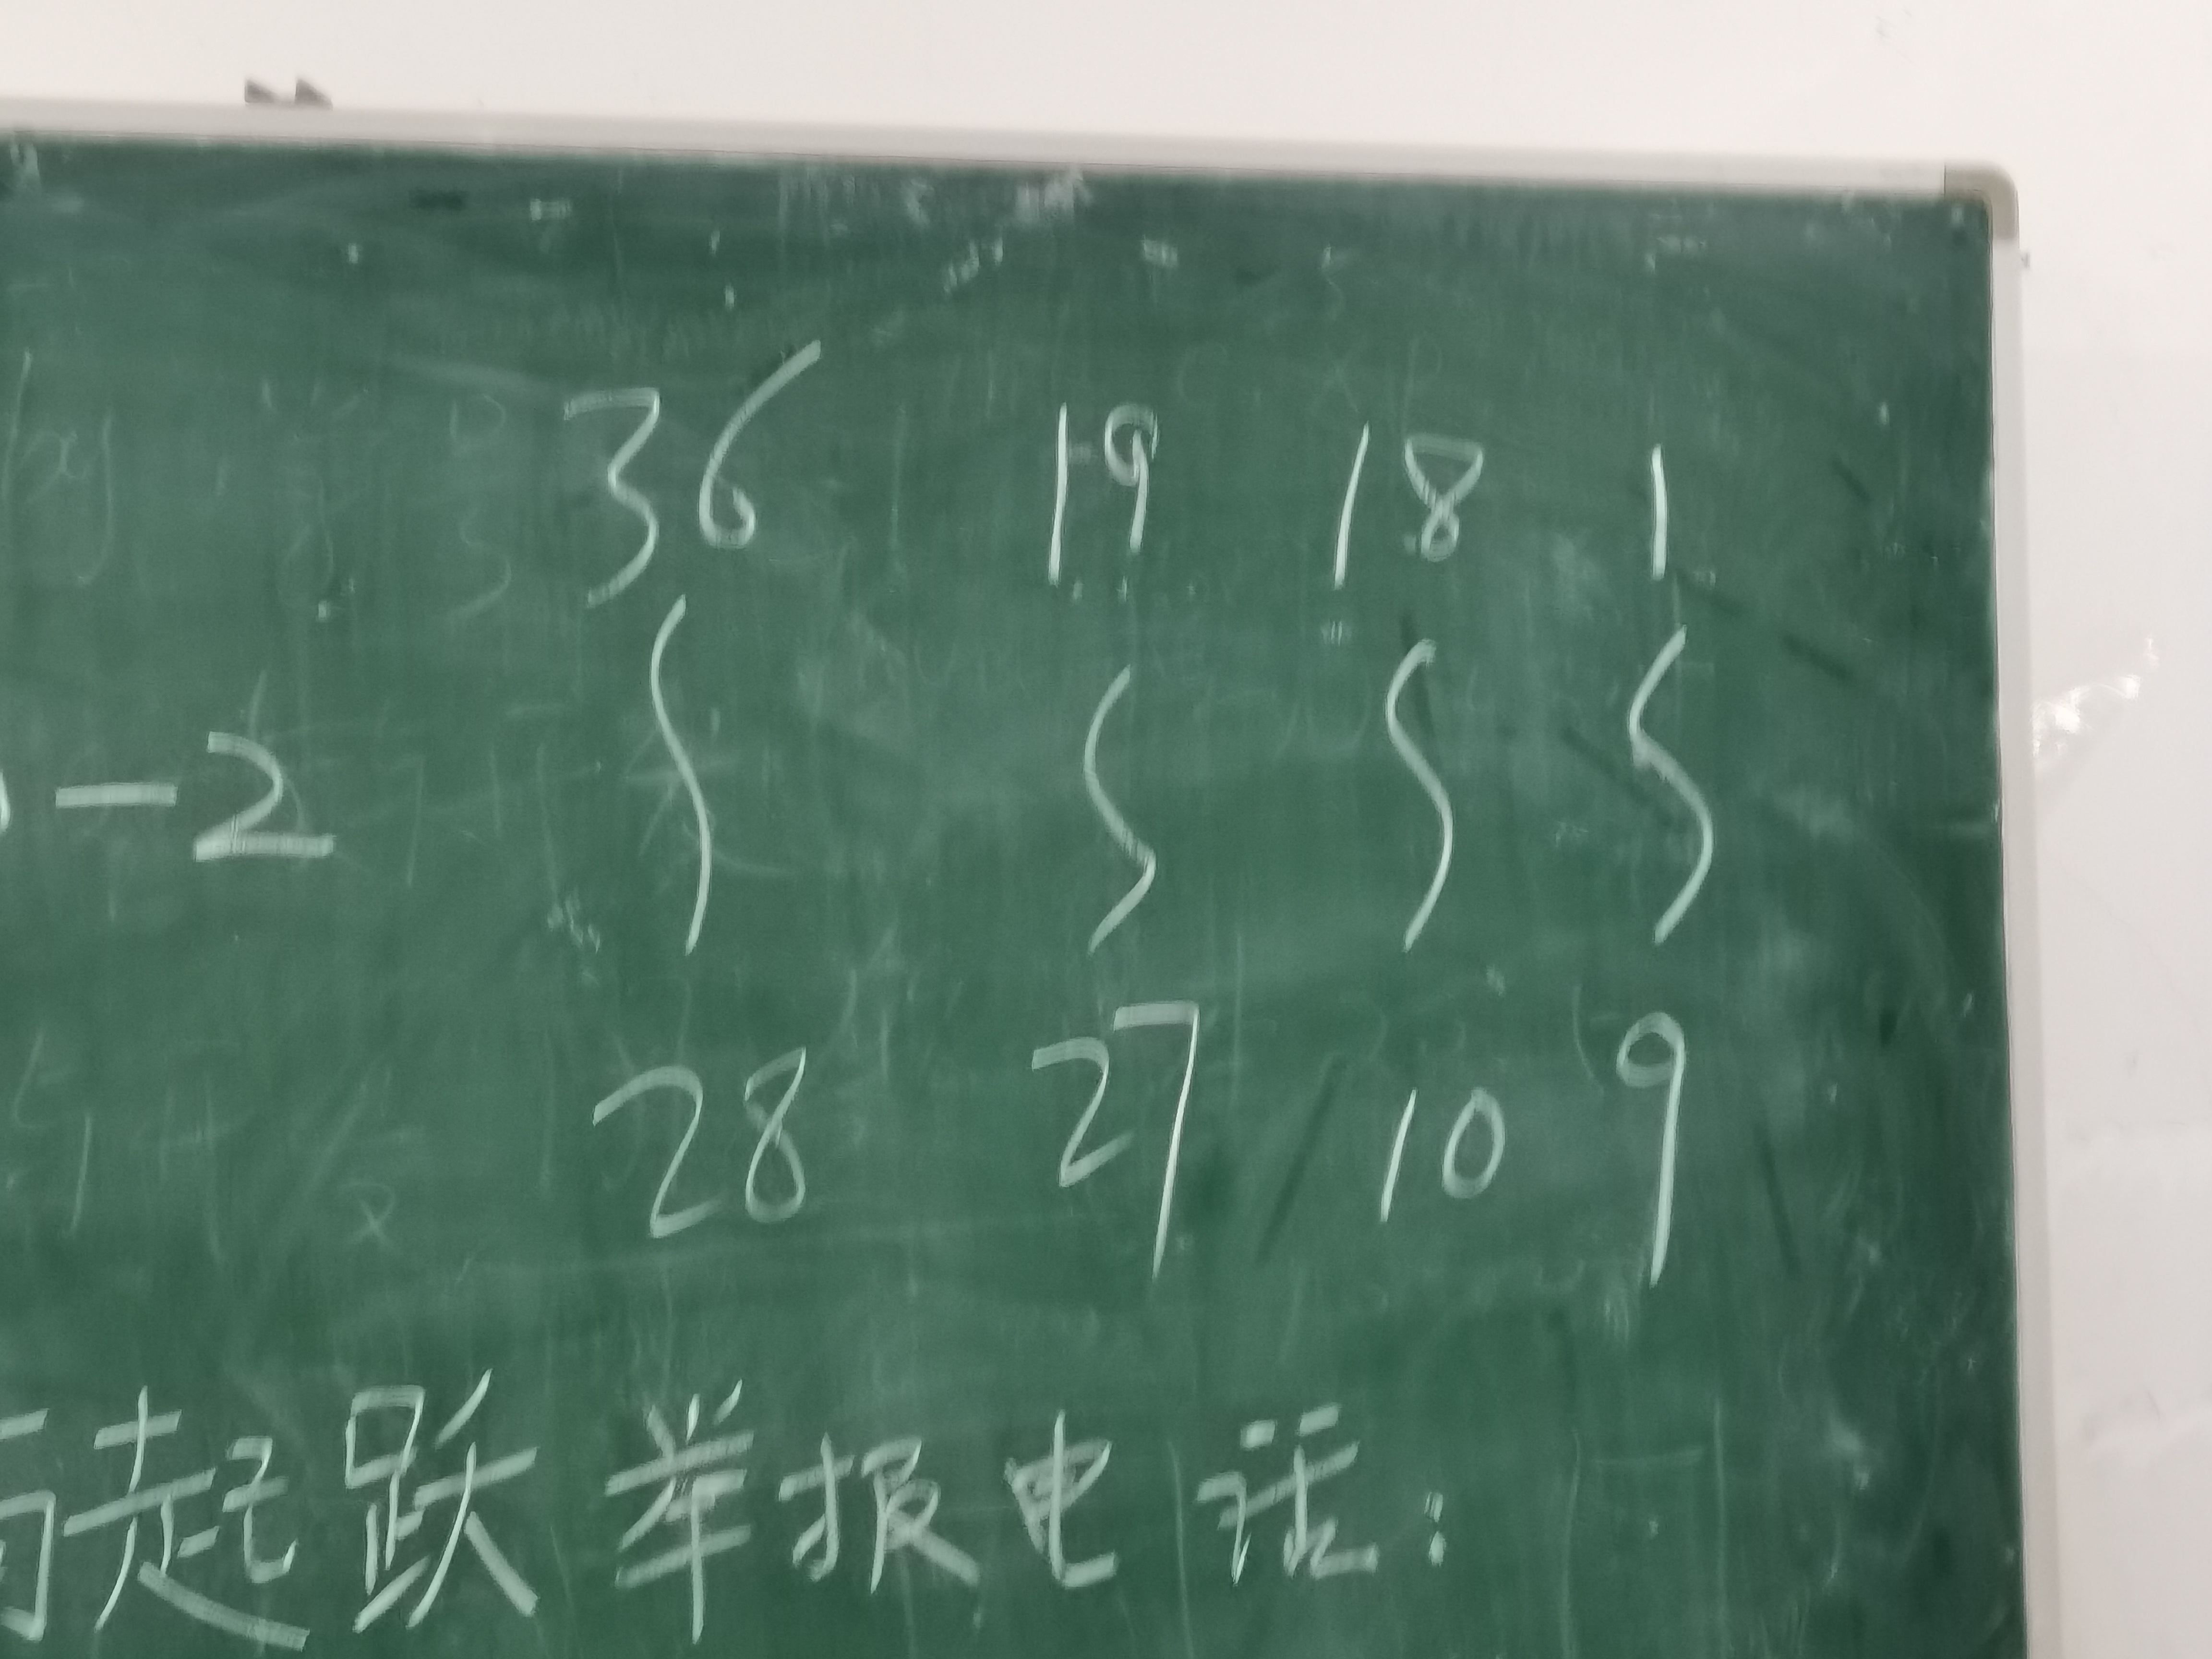 36 19 18 1
-2
28 27 10 9
起跃 举报电话: